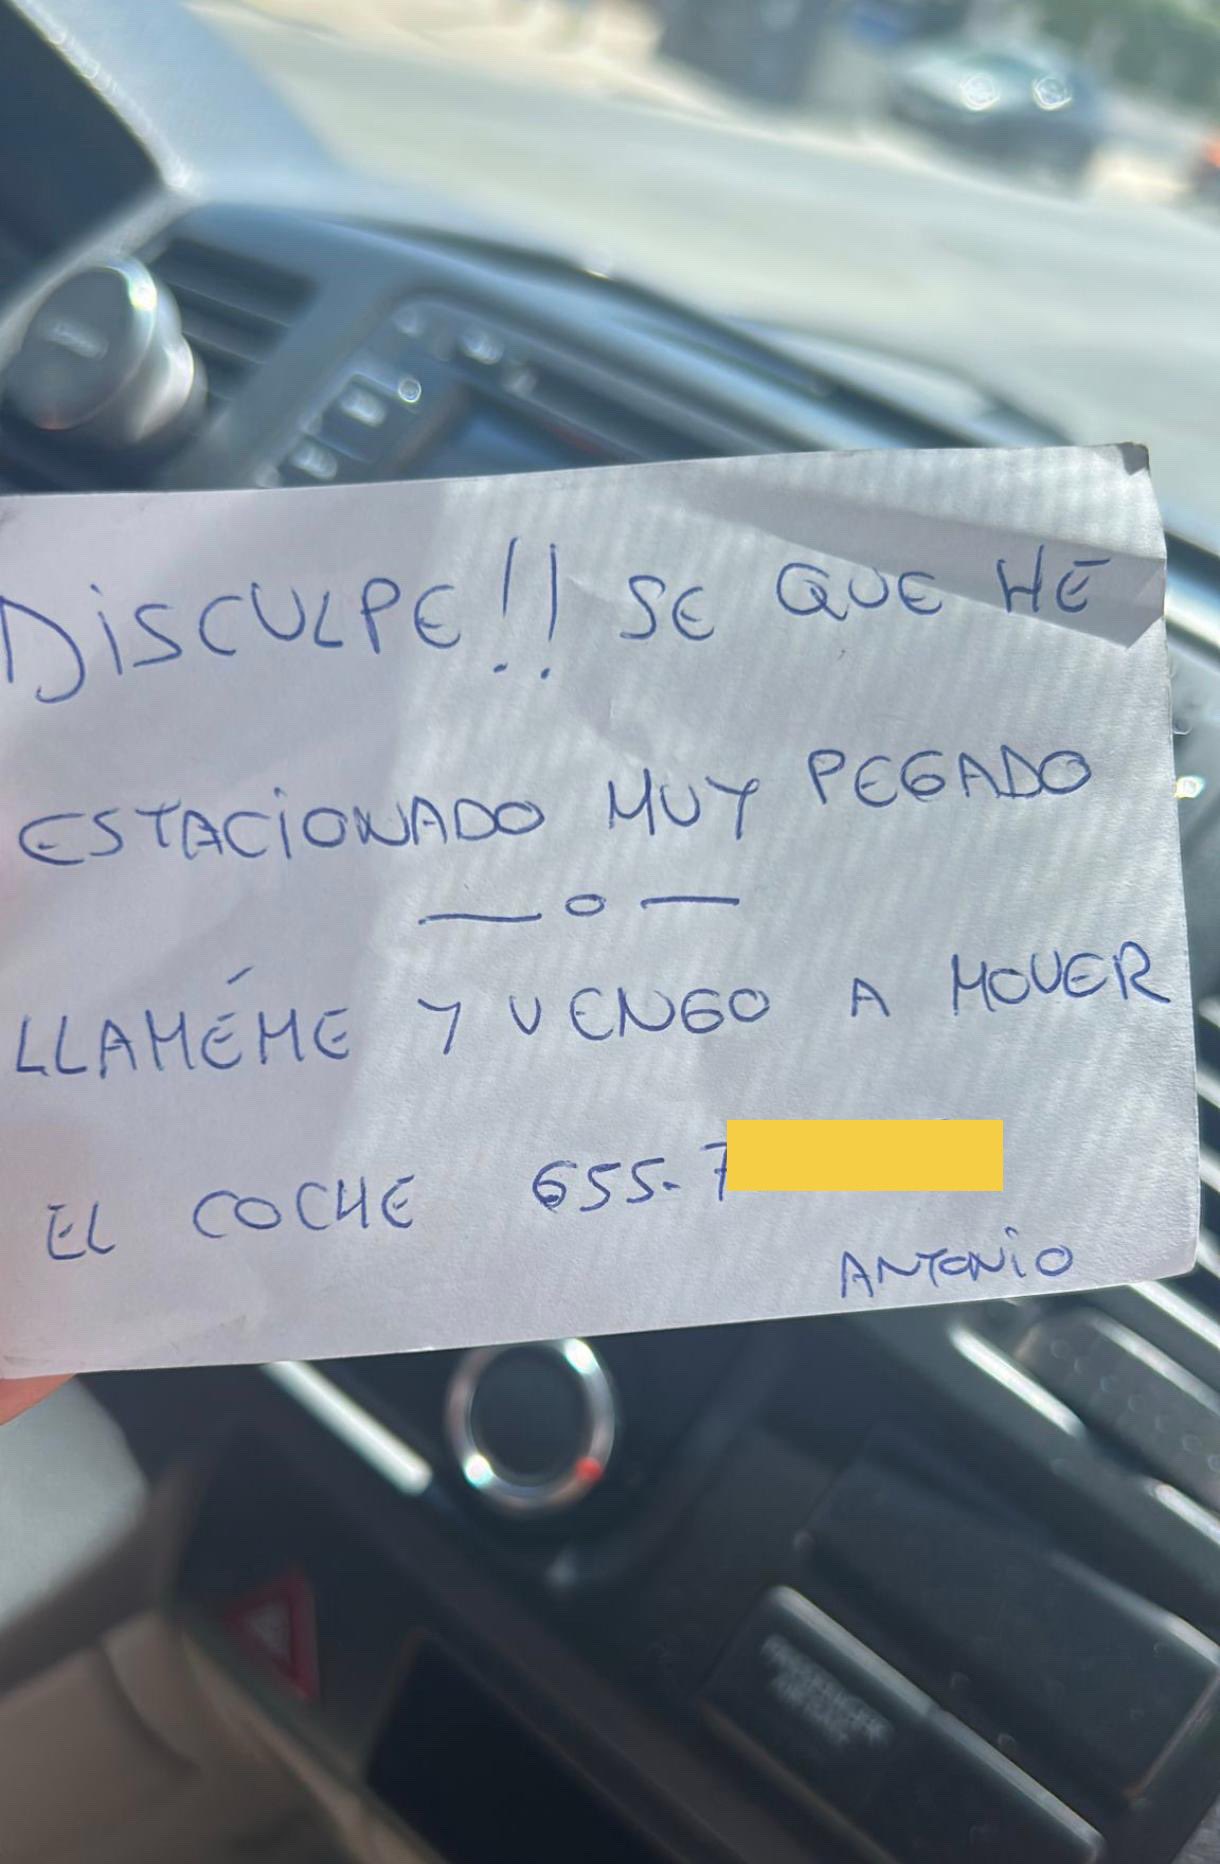 DISCULPE!! SE QUE HE
ESTACIONADO MUY PEGADO
— o —
LLAMÉME Y VENGO A MOVER
EL COCHE 655-7
ANTONIO
PASSENGER
AIR BAG